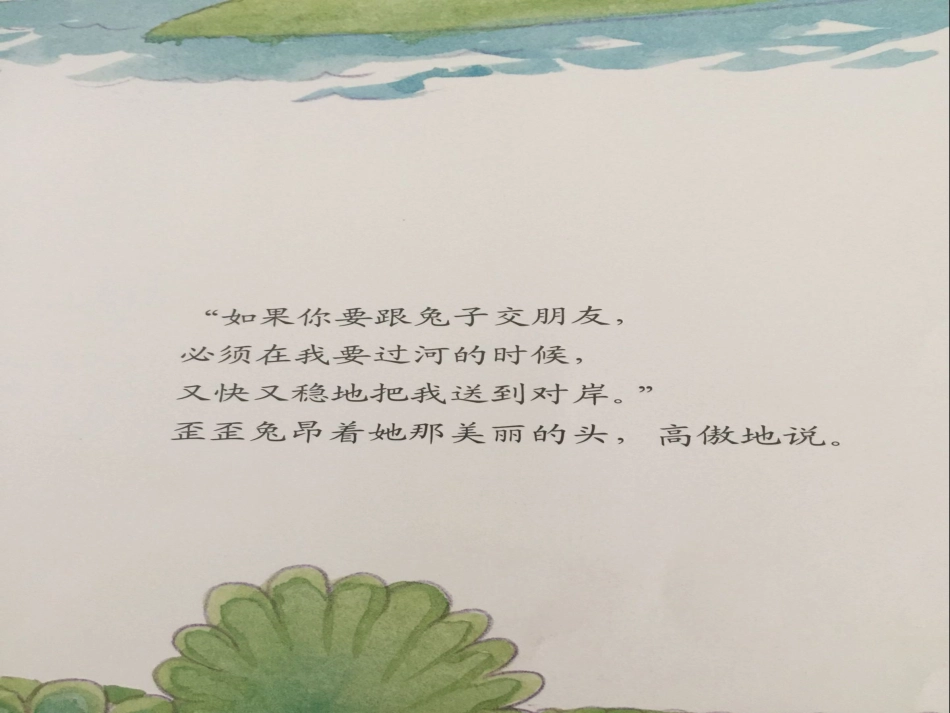 “如果你要跟兔子交朋友，
必须在我要过河的时候，
又快又稳地把我送到对岸。”
歪歪兔昂着她那美丽的头，高傲地说。